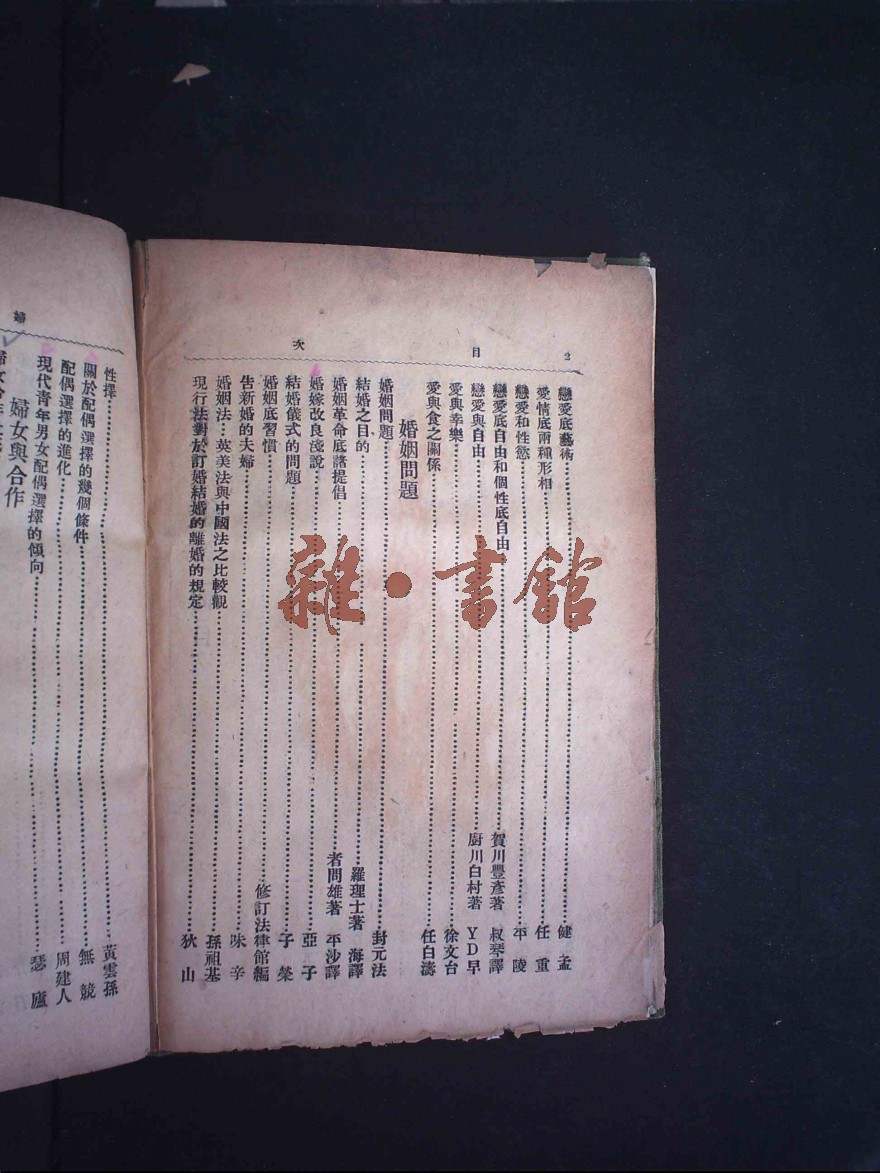 目次
2
戀愛底藝術 健孟
愛情底兩種形相 任重
戀愛和性慾 平陵
戀愛底自由和個性底自由 賀川豐彥著 叔琴譯
戀愛與自由 廚川白村著 YD早
愛與幸樂 徐文台
愛與食之關係 任白濤
婚姻問題
婚姻問題 封元法
結婚之目的 羅理士著 海譯
婚姻革命底諸提倡 者問雄著 平沙譯
婚嫁改良淺說 亞子
結婚儀式的問題 子榮
婚姻底習慣 修訂法律館編
告新婚的夫婦 味辛
婚姻法：英美法與中國法之比較觀 孫祖基
現行法對於訂婚結婚的離婚的規定 狄山
婦
性擇 黃雲孫
關於配偶選擇的幾個條件 無競
配偶選擇的進化 周建人
現代青年男女配偶選擇的傾向 瑟廬
婦女與合作
雜·書館